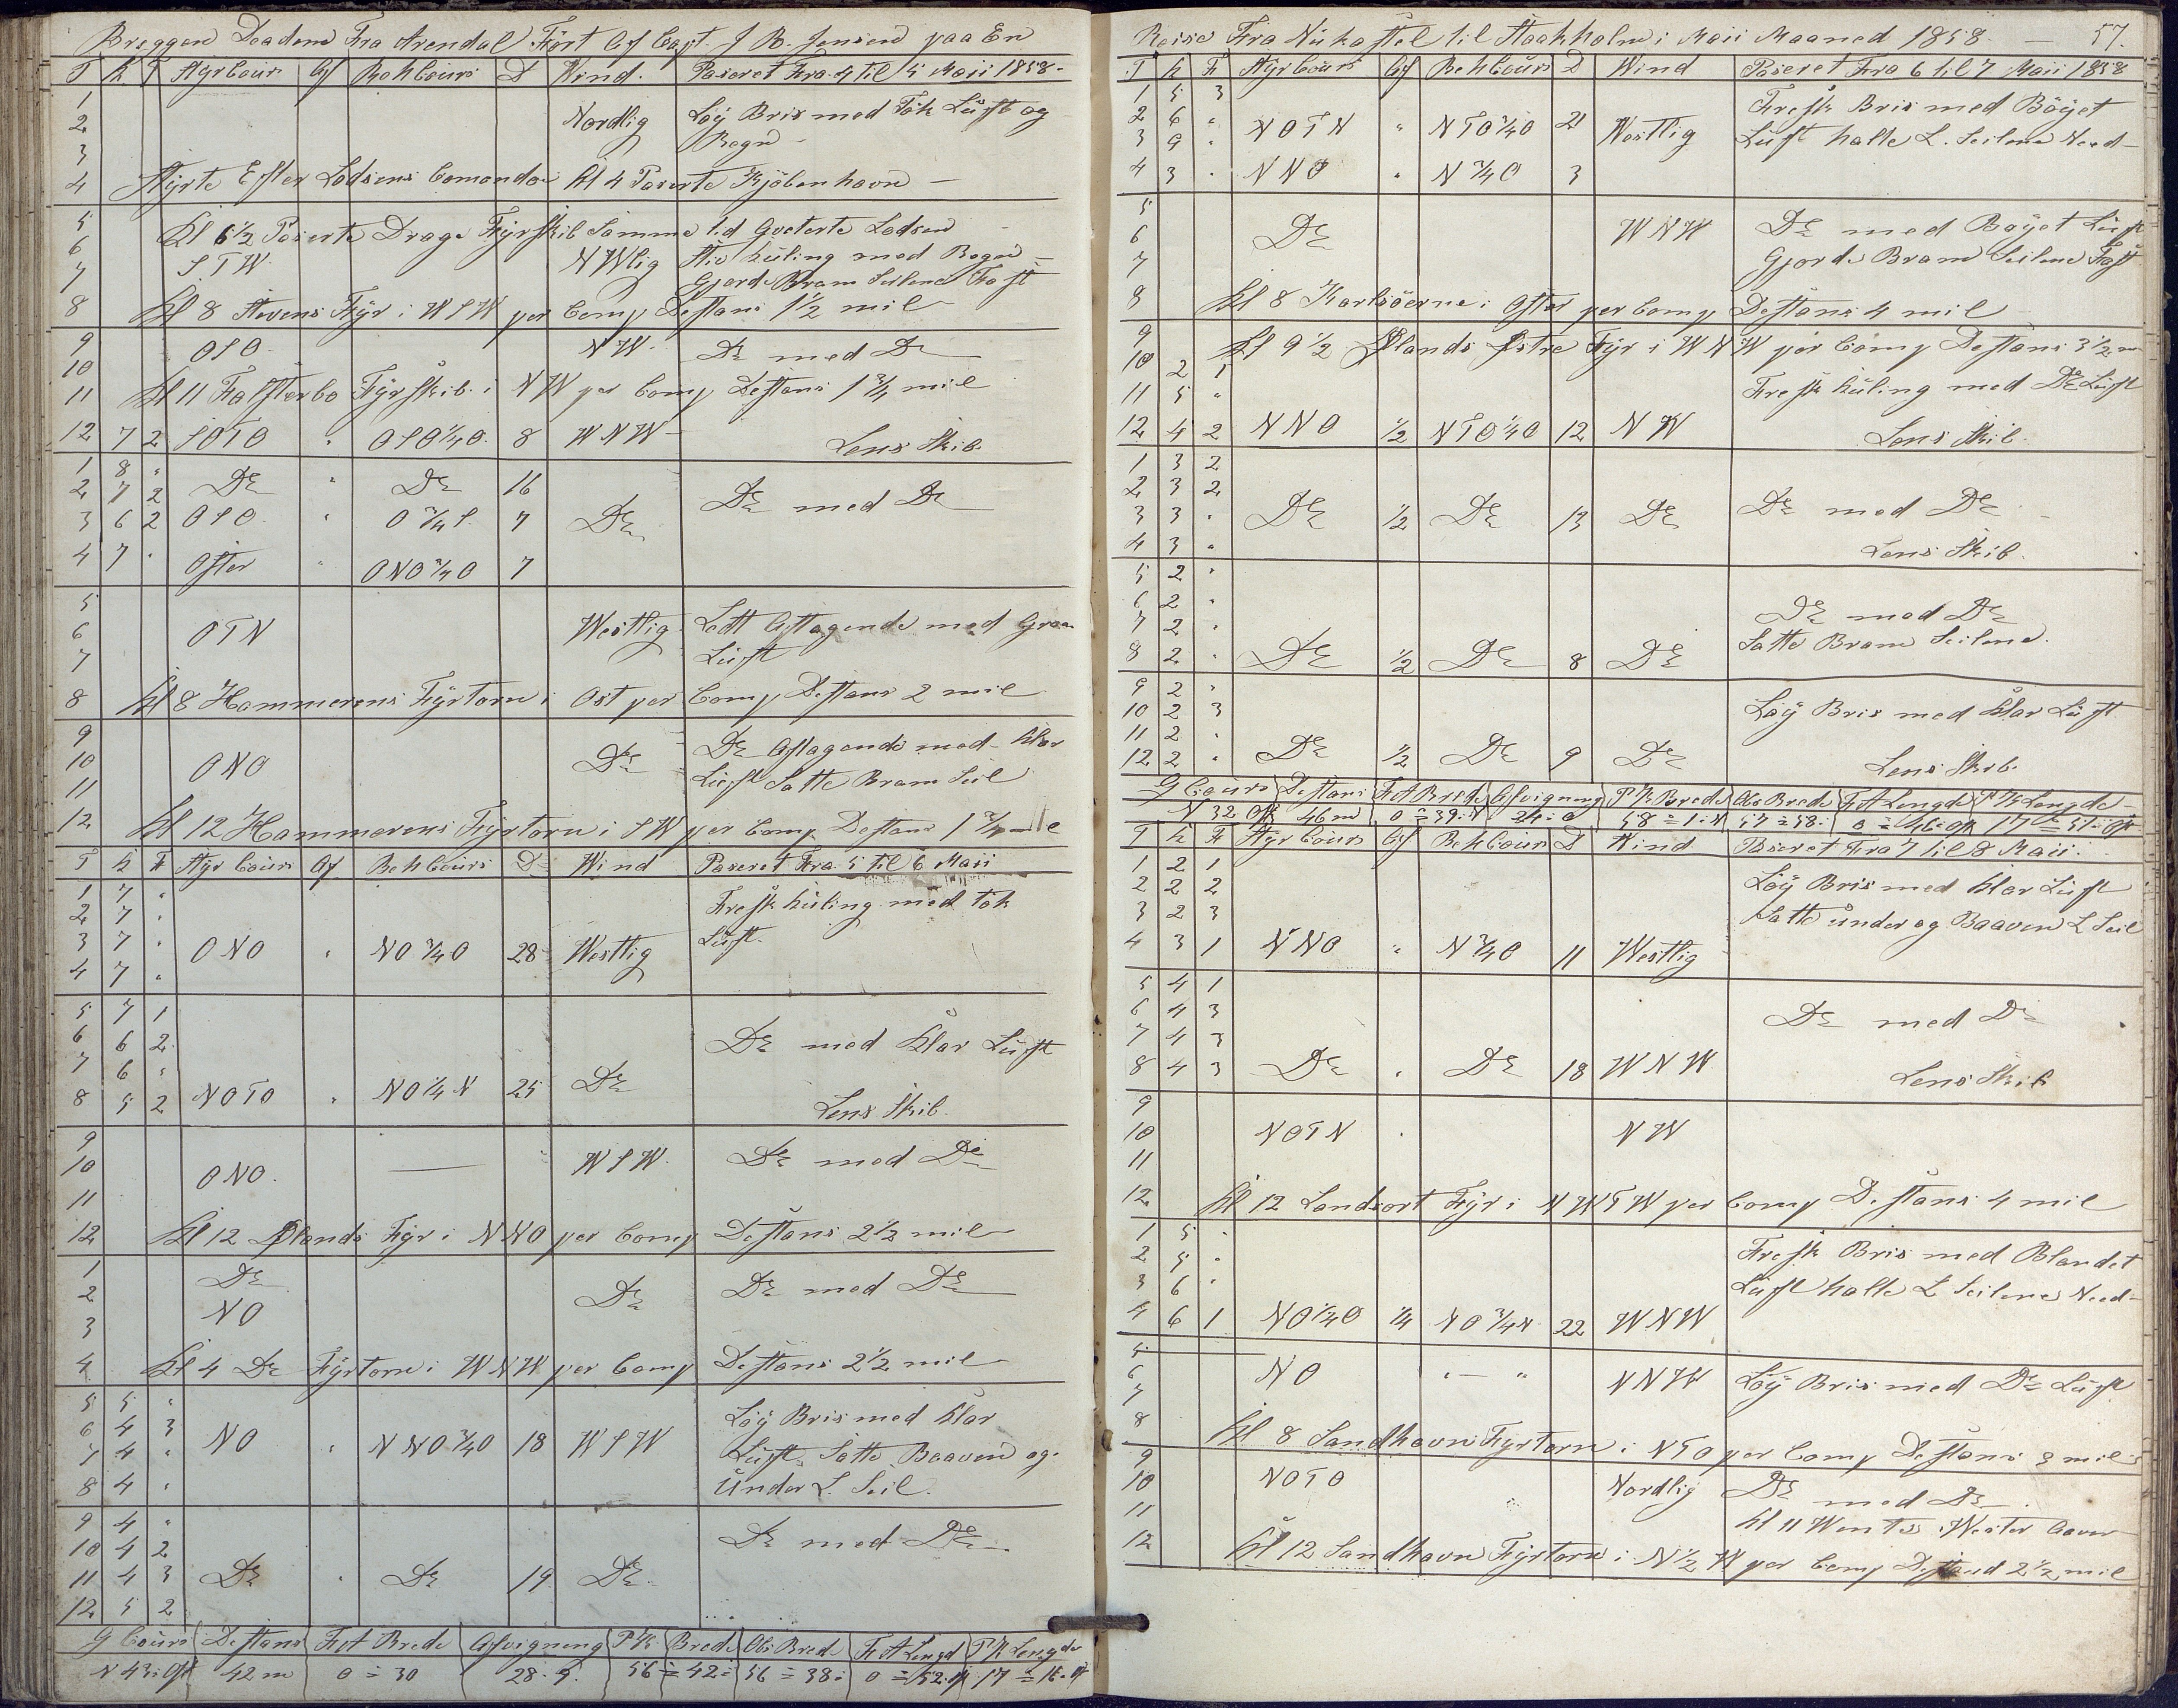 Breggen Deadem Fra Arendal Fört Af Capt. J B. Jensen paa En
T K F Styr Cours Af Beh Cours D Wind. Paseret Fra 4 til 5 Maii 1858-
1
2 Nordlig Löy Bris med Tök Luft og
3 Regn -
4 Styrte Efter Lodsens Comando Kl 4 Paserte Kjöbenhavn -
5 Kl 6½ Paserte Drago Fyrskib Samme tid Qveterte Lodsen
6 STW. NWlig Stiv Küling med Regn -
7 Gjorde Bram Seilene Fast
8 Kl 8 Stevens Fyr i WSW per Comp Destans 1½ mil
9 OSO. NW. Do med Do
10
11 Kl 11 Falsterbo Fyrskib i NW per Comp Destans 1¾ mil
12 7 2 SOTO " OSO¼O. 8 WNW- Lens Skib.
1 8 "
2 7 2 Do " Do 16 Do med Do
3 6 2 OSO. " O¾S. 7 Do
4 7 " Oster " ONO¾O 7
5
6 OTN Westlig Lett Aftagende med Graa
7 Luft
8 Kl 8 Hammerens Fyrtorn i Ost per Comp Destans 2 mil
9 Do Aftagende med Klar
10 ONO Do Luft Satte Bram Seil
11
12 Kl 12 Hammerens Fyrtorn i SW per Comp Destans 1¾ mil
T K F Styr Cours Af Beh Cours D Wind Paseret Fra 5 til 6 Maii
1 7 "
2 7 " Fresk Küling med tök
3 7 " ONO " NO¾O 28 Westlig Luft.
4 7 "
5 7 1
6 6 2 Do med Klar Luft
7 6 "
8 5 2 NOTO " NO¼N 25 Do Lens Skib.
9
10 ONO. WSW. Do med Do
11
12 Kl 12 Ølands Fyr i NNO per Comp Destans 2½ mil
1 Do Do med Do
2 NO Do
3
4 Kl 4 Do Fyrtorn i WNW per Comp Destans 2½ mil
5 5 "
6 4 3 NO " NNO¾O 18 WSW Löy Bris med Klar
7 4 " Luft. Satte Baaven og
8 4 " Under L. Seil.
9 4 "
10 4 2 Do med Do
11 4 3 Do " Do 19 Do
12 5 2
G Cours Destans F A Brede Afvigning P K Brede Obs Bred F A Lengd P K Lengde
N 43 Ost 42 m 0 = 30 28.9. 56 = 42 56 = 38 0 = 52 Ost 17 = 16 Ost
Reise Fra Nükastel til Stokholm i Maii Maaned 1858 - 57.
T K F Styr Cours Af Beh Cours D Wind Paseret Fra 6 til 7 Maii 1858
1 5 3 Fresk Bris med Böyet
2 6 " NOTN " NTO¾O 21 Westlig Luft halte L. Seilene Need-
3 9 "
4 3 " NNO " N¾O 3
5
6 Do WNW Do med Böyet Luft
7 Gjorde Bram Seilene Fast
8 Kl 8 Karlsöerne i Oster per Comp Destans 4 mil
9 Kl 9½ Ølands Østre Fyr i WNW per Comp Destans 3½ m
10 2 1
11 5 " Fresk Küling med Do Luft
12 4 2 NNO ½ NTO¼O 12 NW Lens Skib.
1 3 2
2 3 2
3 3 " Do ½ Do 13 Do Do med Do
4 3 " Lens Skib.
5 2 "
6 2 " Do med Do
7 2 " Satte Bram Seilene.
8 2 " Do ½ Do 8 Do
9 2 "
10 2 3 Löy Bris med Klar Luft
11 2 "
12 2 " Do ½ Do 9 Do Lens Skib.
G Cours Destans F A Brede Afvigning P K Brede Obs Brede F A Lengde P K Lengde
N 32 Ost 46 m 0 = 39 N 24 = O 58 = 1 N 57 = 58 0 = 46 Ost 17 = 51 Ost
T K F Styr Cours Af Beh Cours D Wind Paseret Fra 7 til 8 Maii.
1 2 1 Löy Bris med Klar Luft
2 2 2
3 2 3 Satte under og Baaven L Seil
4 3 1 NNO " N¾O 11 Westlig
5 4 1
6 4 3 Do med Do
7 4 3
8 4 3 Do " Do 18 WNW Lens Skib
9
10 NOTN " NW
11
12 Kl 12 Landsort Fyr i NWTW per Comp Destans 4 mil
1 5 "
2 5 " Fresk Bris med Blandet
3 6 " Luft halte L Seilene Need-
4 6 1 NO½O ¼ NO¾N 22 WNW
5
6 NO " - " NNW Löy Bris med Do Luft
7
8 Kl 8 Sandhavn Fyrtorn i NTO per Comp Destans 3 mil
9
10 NOTO Nordlig Do med Do
11 Kl 11 Wentes Wester Over
12 Kl 12 Sandhavn Fyrtorn i N½W per Comp Destand 2½ mil